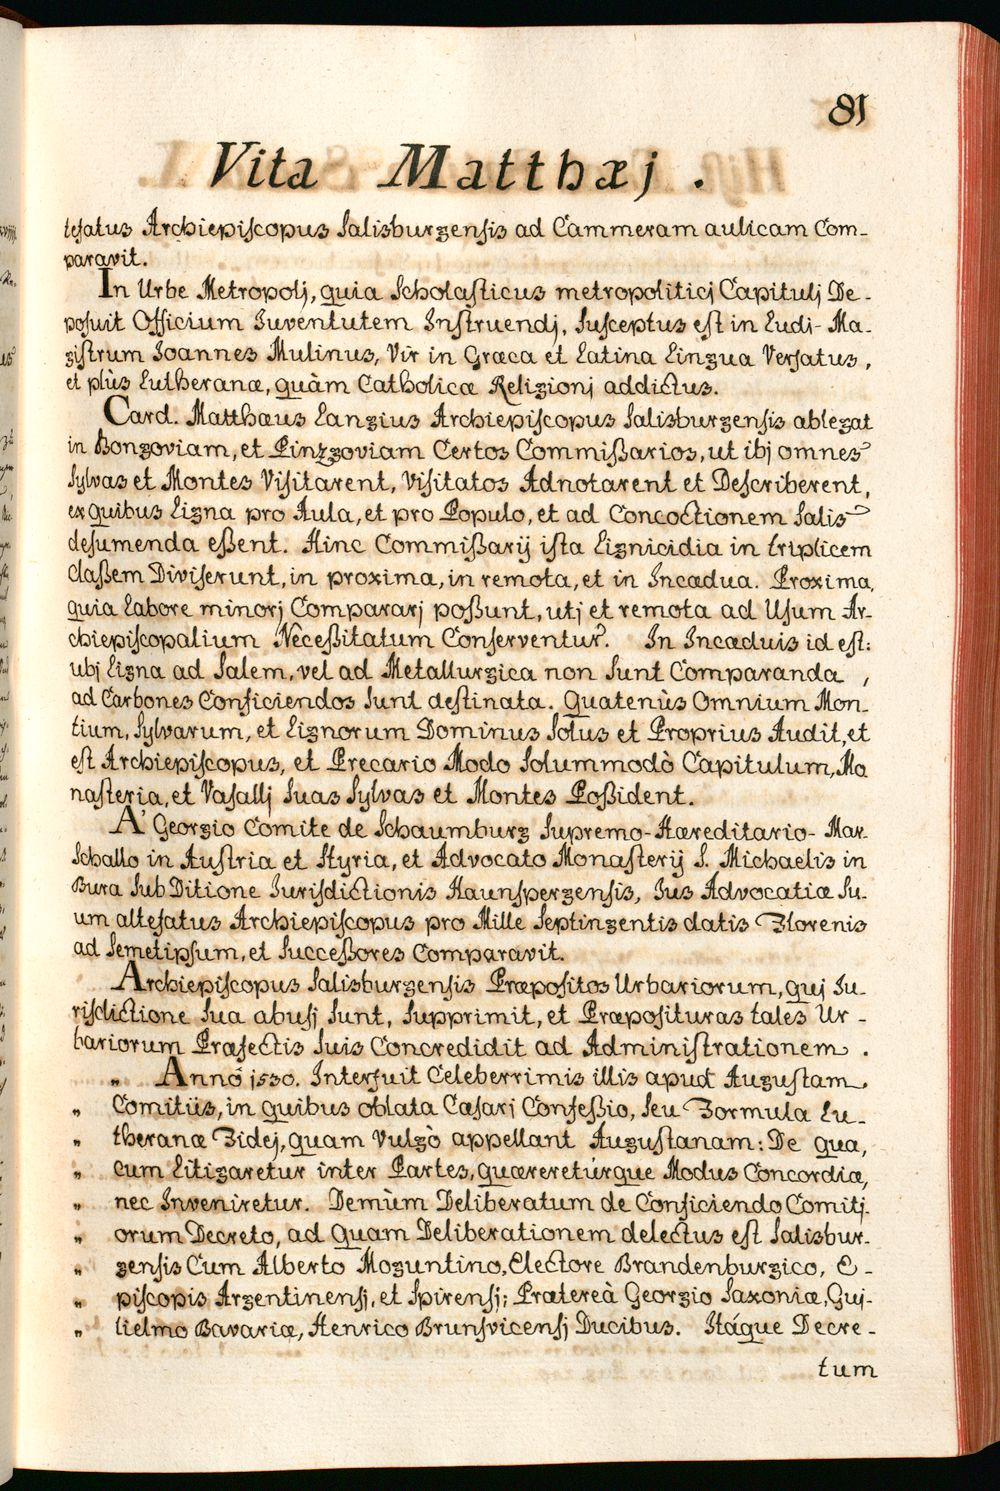 81
Vita Matthæj.
lefatus Archiepiscopus Salisburgensis ad Cammeram aulicam Com-
paravit.
In Urbe Metropolj, quia Scholasticus metropoliticj Capitulj De-
posuit Officium Iuventutem Instruendj, Susceptus est in Ludi-Ma-
gistrum Ioannes Mulinus, Vir in Græca et Latina Lingua Versatus,
et plùs Lutheranæ, quàm Catholicæ Religionj addictus.
Card. Matthæus Langius Archiepiscopus Salisburgensis ablegat
in Bongoviam, et Pinzgoviam Certos Commißarios, ut ibj omnes
Sylvas et Montes Visitarent, Visitatos Adnotarent et Describerent,
ex quibus Ligna pro Aula, et pro Populo, et ad Concoctionem Salis
desumenda eßent. Hinc Commißarij ista Lignicidia in triplicem
Claßem Diviserunt, in proxima, in remota, et in Incædua. Proxima,
quia Labore minorj Compararj poßunt, utj et remota ad Usum Ar-
chiepiscopalium Neceßitatum Conserventur. In Incæduis id est:
ubj Ligna ad Salem, vel ad Metallurgica non Sunt Comparanda,
ad Carbones Conficiendos Sunt destinata. Quatenùs Omnium Mon-
tium, Sylvarum, et Lignorum Dominus Solus et Proprius Audit, et
est Archiepiscopus, et Precario Modo Solummodò Capitulum, Mo
nasteria, et Vasallj Suas Sylvas et Montes Poßident.
A' Georgio Comite de Schaumburg Supremo-Hæreditario-Mar-
Schallo in Austria et Styria, et Advocato Monasterij S. Michaelis in
Bura Sub Ditione Iurisdictionis Haunspergensis, Ius Advocatiæ Su-
um altefatus Archiepiscopus pro Mille Septingentis datis Florenis
ad Semetipsum, et Succeßores Comparavit.
Archiepiscopus Salisburgensis Præpositos Urbariorum, quj Iu-
risdictione Sua abusj Sunt, Supprimit, et Præposituras tales Ur-
bariorum Præfectis Suis Concredidit ad Administrationem.
" Annó 1530. Interfuit Celeberrimis illis apud Augustam
" Comitiis, in quibus oblata Cæsarj Confeßio, Seu Formula Lu-
" theranæ Fidej, quam Vulgò appellant Augustanam: De qua,
" cum Litigaretur inter Partes, quæreretúrque Modus Concordiæ,
" nec Inveniretur. Demùm Deliberatum de Conficiendo Comitj-
" orum Decreto, ad quam Deliberationem delectus est Salisbur-
" gensis Cum Alberto Moguntino, Electore Brandenburgico, E-
" piscopis Argentinensj, et Spirensj; Prætereà Georgio Saxoniæ, Guj-
" lielmo Bavariæ, Henrico Brunsvicensj Ducibus. Itáque Decre-
tum